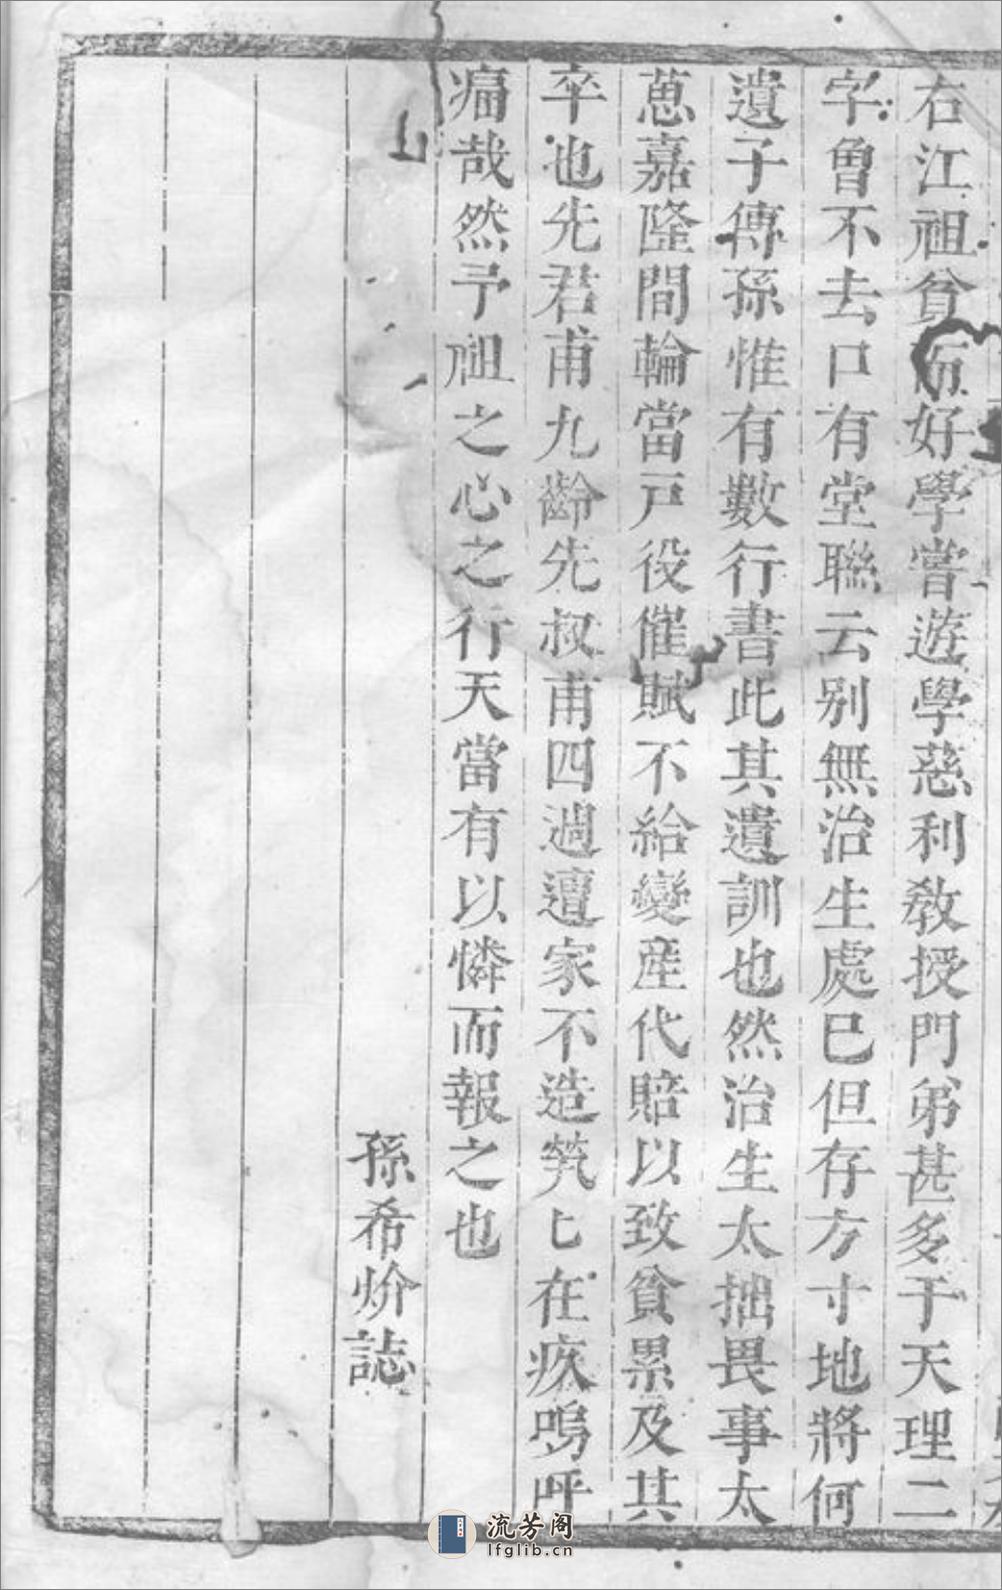 右江祖貧而好學嘗遊學慈利教授門弟甚多于天理二
字曾不去口有堂聯云别無治生處已但存方寸地將何
遺子傳孫惟有數行書此其遺訓也然治生太拙畏事太
葸嘉隆間輪當戸役催賦不給變産代賠以致貧累及其
卒也先君甫九齡先叔甫四週遭家不造煢匕在疚嗚呼
痛哉然予祖之心之行天當有以憐而報之也
孫希炌誌
流芳阁
lfglib.cn